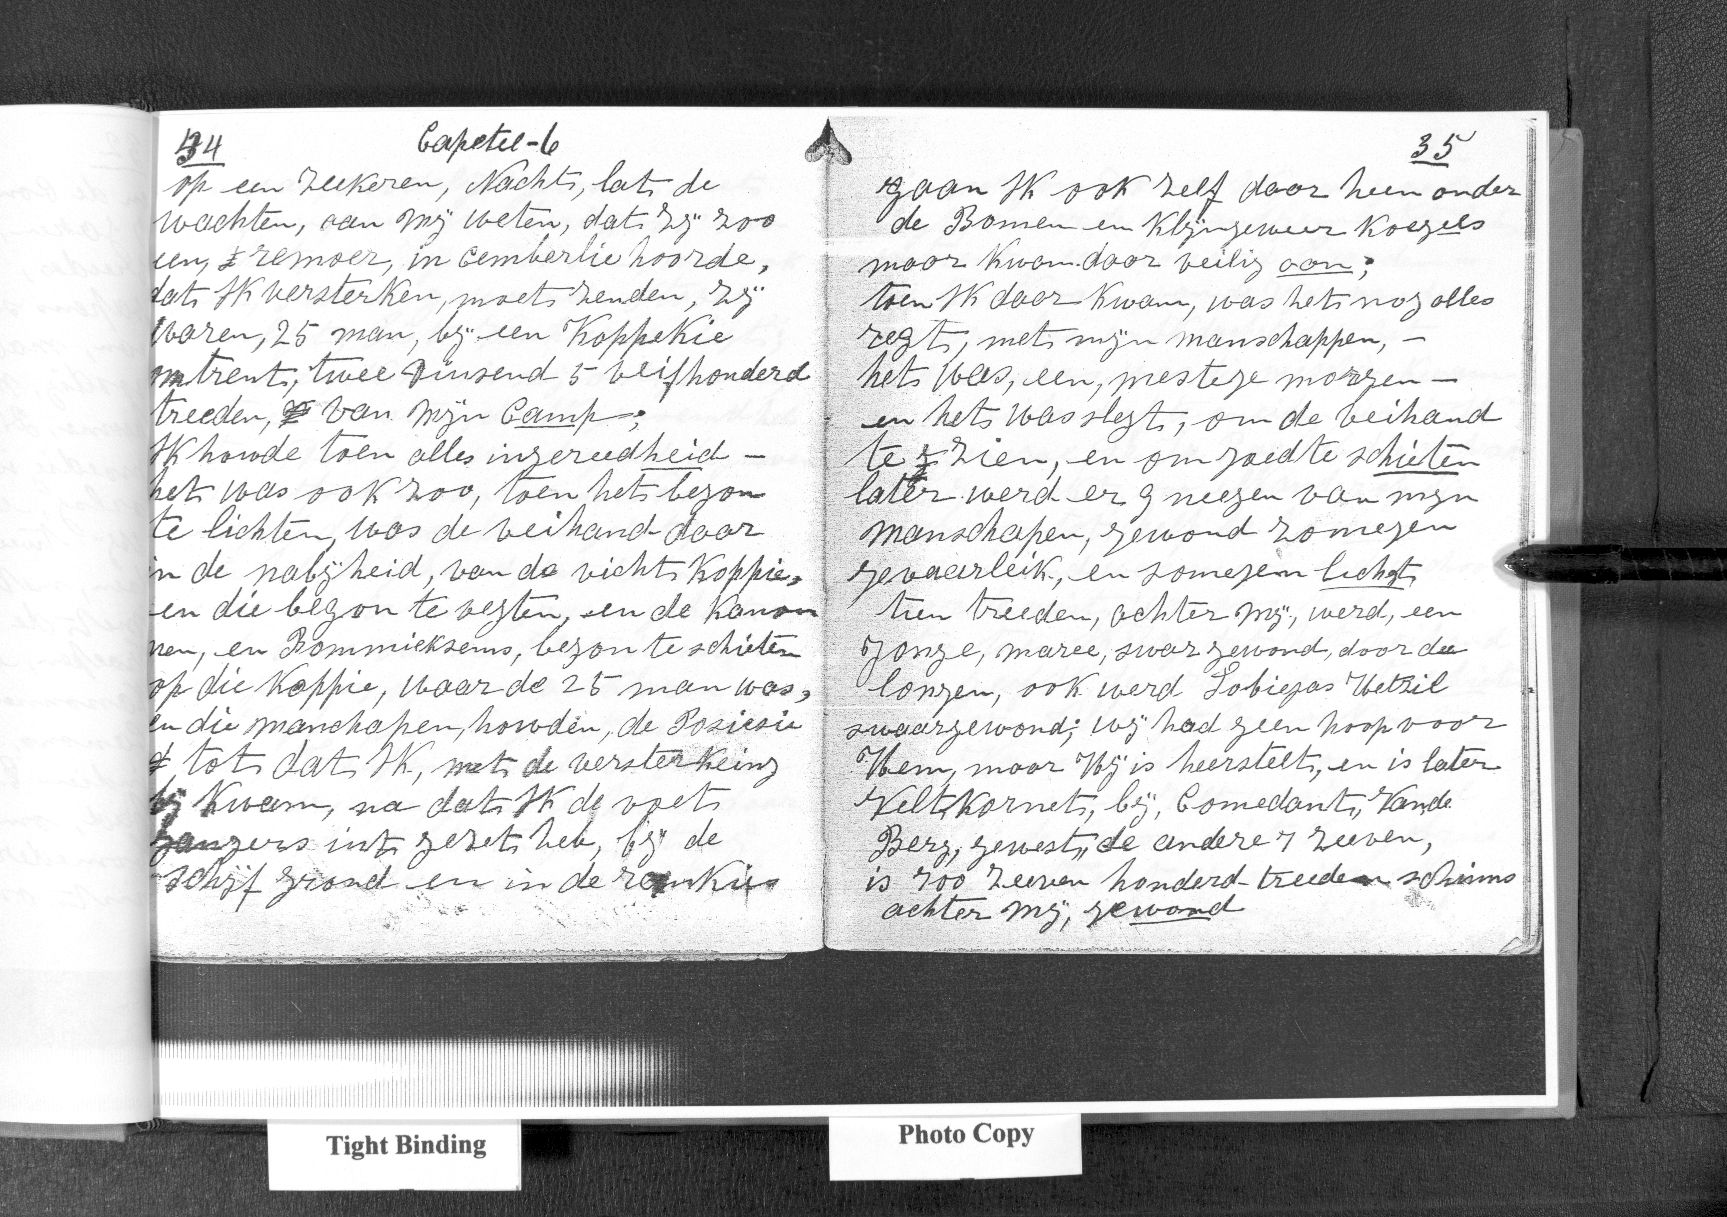 34
Capetel-6
op een Zeekeren, Nachts, lats de
wachten, aan Mÿ weten, dats Zÿ zoo
een, remoer, in Cemberlie hoorde,
dats IK versterken, moets Zenden, Zÿ
Waren, 25 man, bÿ een Koppekie
omtrents, twee Duisend 5 veifhonderd
treeden, van Mÿn Camp;
IK howde toen alles ingereedheid –
hets was ook zoo, toen hets begon
te lichten, was de veihand daar
in de nabÿheid, van de vichts Koppie,
en die begon te vegten, en de Kanon
nen, en Bommieksems, begon te schieten
op die Koppie, waar de 25 man was,
en die manchapen, howden, de Posiesie
tots dats IK, mets de versterkeing
bÿ Kwam, na dats IK de voets
gangers ints gezets heb, bÿ de
schÿf grond en in de
35
gaan IK ook zelf daar heen onder
de Bomen en Klÿngeweer Koegels
maar Kwam daar veilig aan;
toen IK daar Kwam, was hets nog alles
regts, mets mÿn manschappen, –
hets Was, een, mestege morgen –
en hets was slegt, om de veihand
te Zien, en om goed te schieten
later werd er 9 neegen van mÿn
Manschapen, gewond zomegen
gevaarleik, en somegem lichts
tien treeden, achter Mÿ, werd, een
Jonge, maree, swar gewond, door de
longen, ook werd Lobiegas Wetzil
swaargewond; wÿ had geen hoop voor
Hem, maar Hÿ is heerstelts, en is later
Veltkornets, bÿ, Comedants, Vande
Berg, gewests, de andere 7 zeeven,
is 700 Zeeven honderd treeden schiins
achter Mÿ, gewond
Tight Binding
Photo Copy